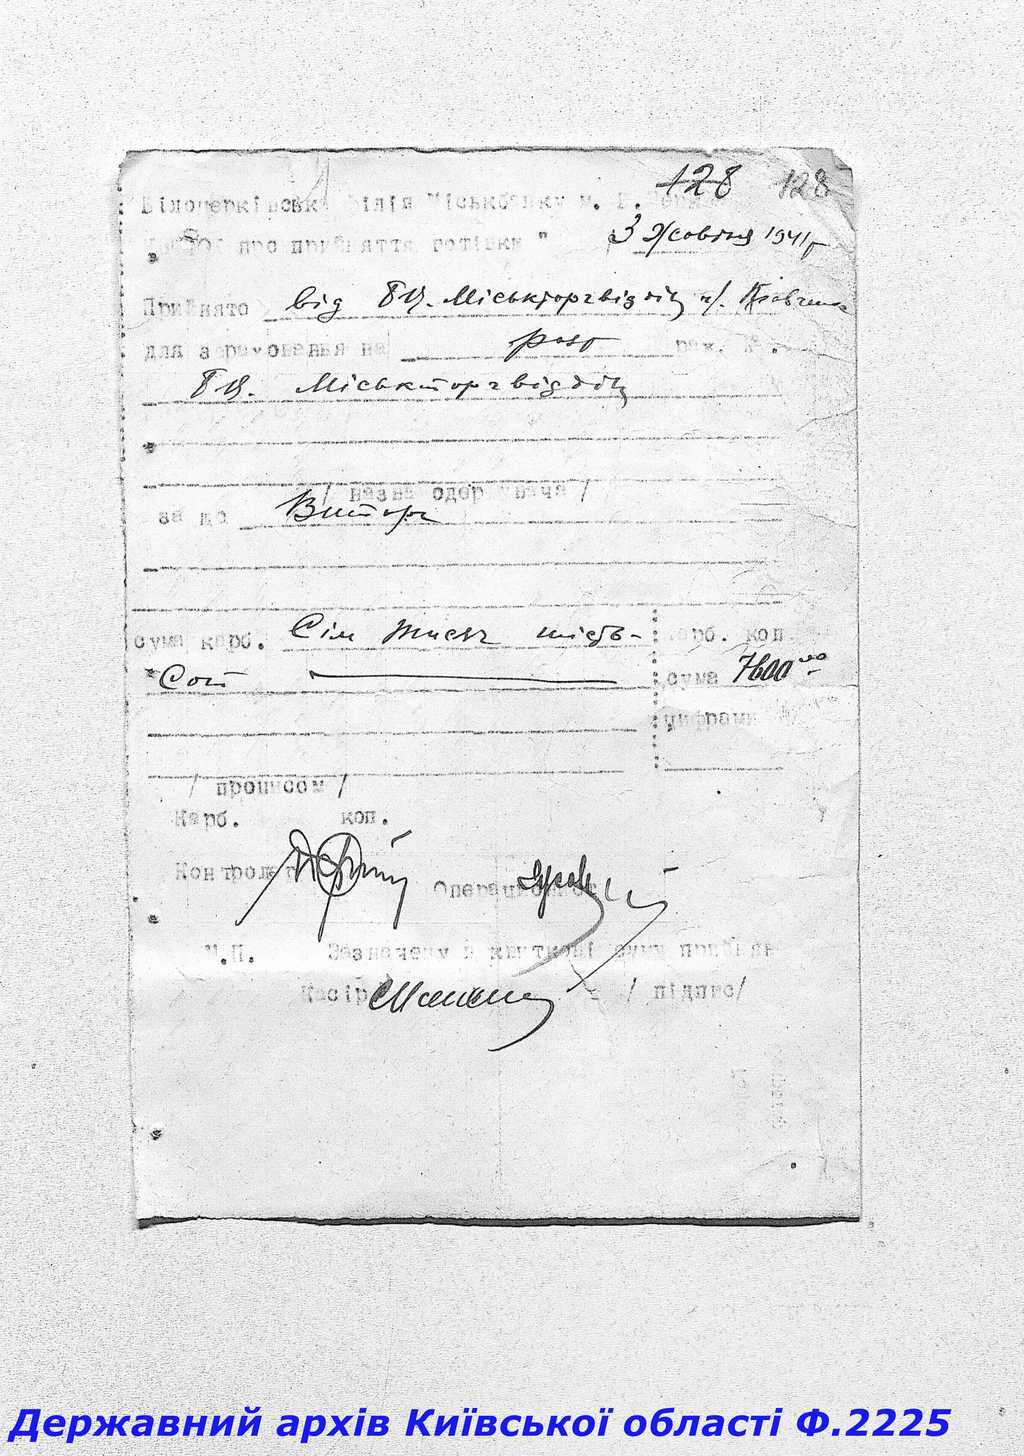 128 128
Білоцерківськ філія Міськбанку м. Б.
про прийняття готівки " 3 Жовтня 1941 г
Прийнято від БЦ. Міськторгвідділу ч/.
для зарахування на розр рах. №.
БЦ. Міськторгвідділу
/ назва одержувача /
за що Виторг
сума карб. Сім тисяч шість- карб. коп
Сот сума 7600 00
цифрами
/ прописом /
Карб. коп.
Контролер Операціоніст
М.П. Зазначену в квиткові суму прийняв
Касір / підпис/
Державний архів Київської області Ф.2225